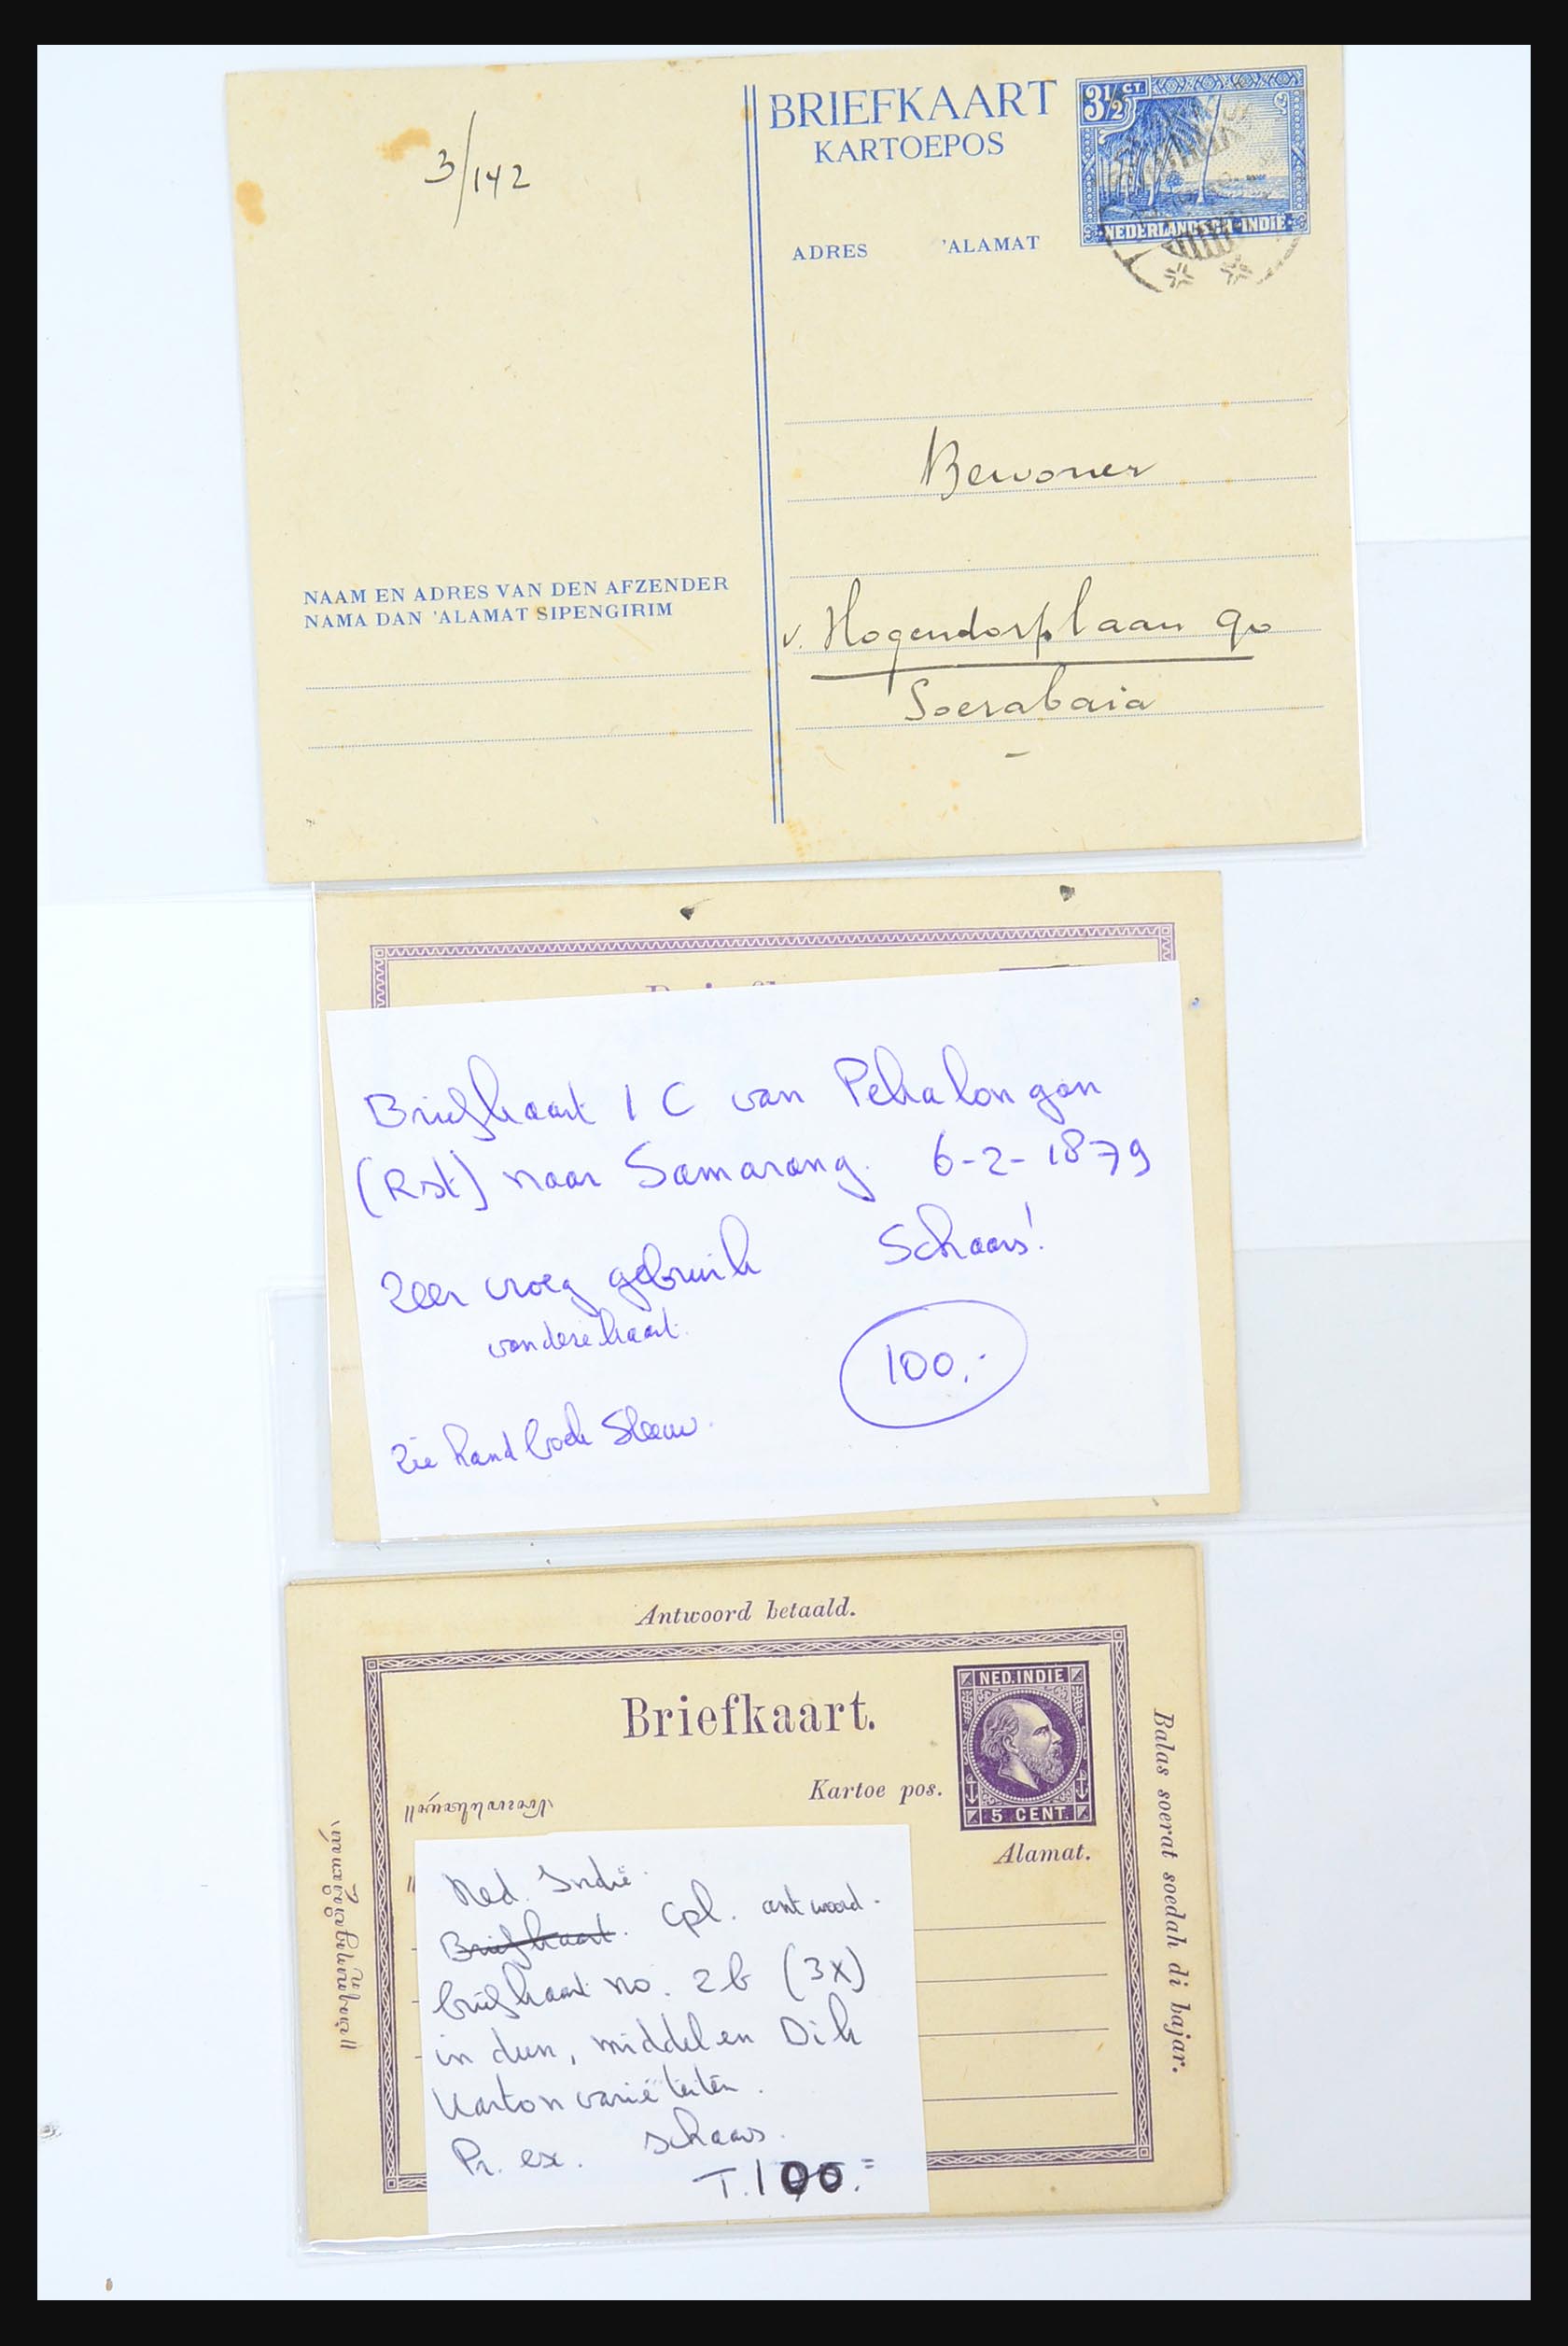 3/142
BRIEFKAART
KARTOEPOS
3½ CT.
NEDERLANDSCH-INDIË
ADRES 'ALAMAT
Bewoner
v. Hogendorplaan 90
Soerabaia
NAAM EN ADRES VAN DEN AFZENDER
NAMA DAN 'ALAMAT SIPENGIRIM
Briefkaart 1 C van Pekalongan
(Rst) naar Samarang. 6-2-1879
Zeer vroeg gebruik Schaars!
van deze kaart.
100,-
Zie handboek Sleeuw.
Antwoord betaald.
Briefkaart.
NED. INDIE
5 CENT.
Kartoe pos.
Alamat.
Balas soerat soedah di bajar.
Ned. Indië.
Briefkaart. Cpl. antwoord.
briefkaart no. 2b (3x)
in dun, middel en Dik
Karton variëteiten.
Pr. ex. schaars.
T. 100.=